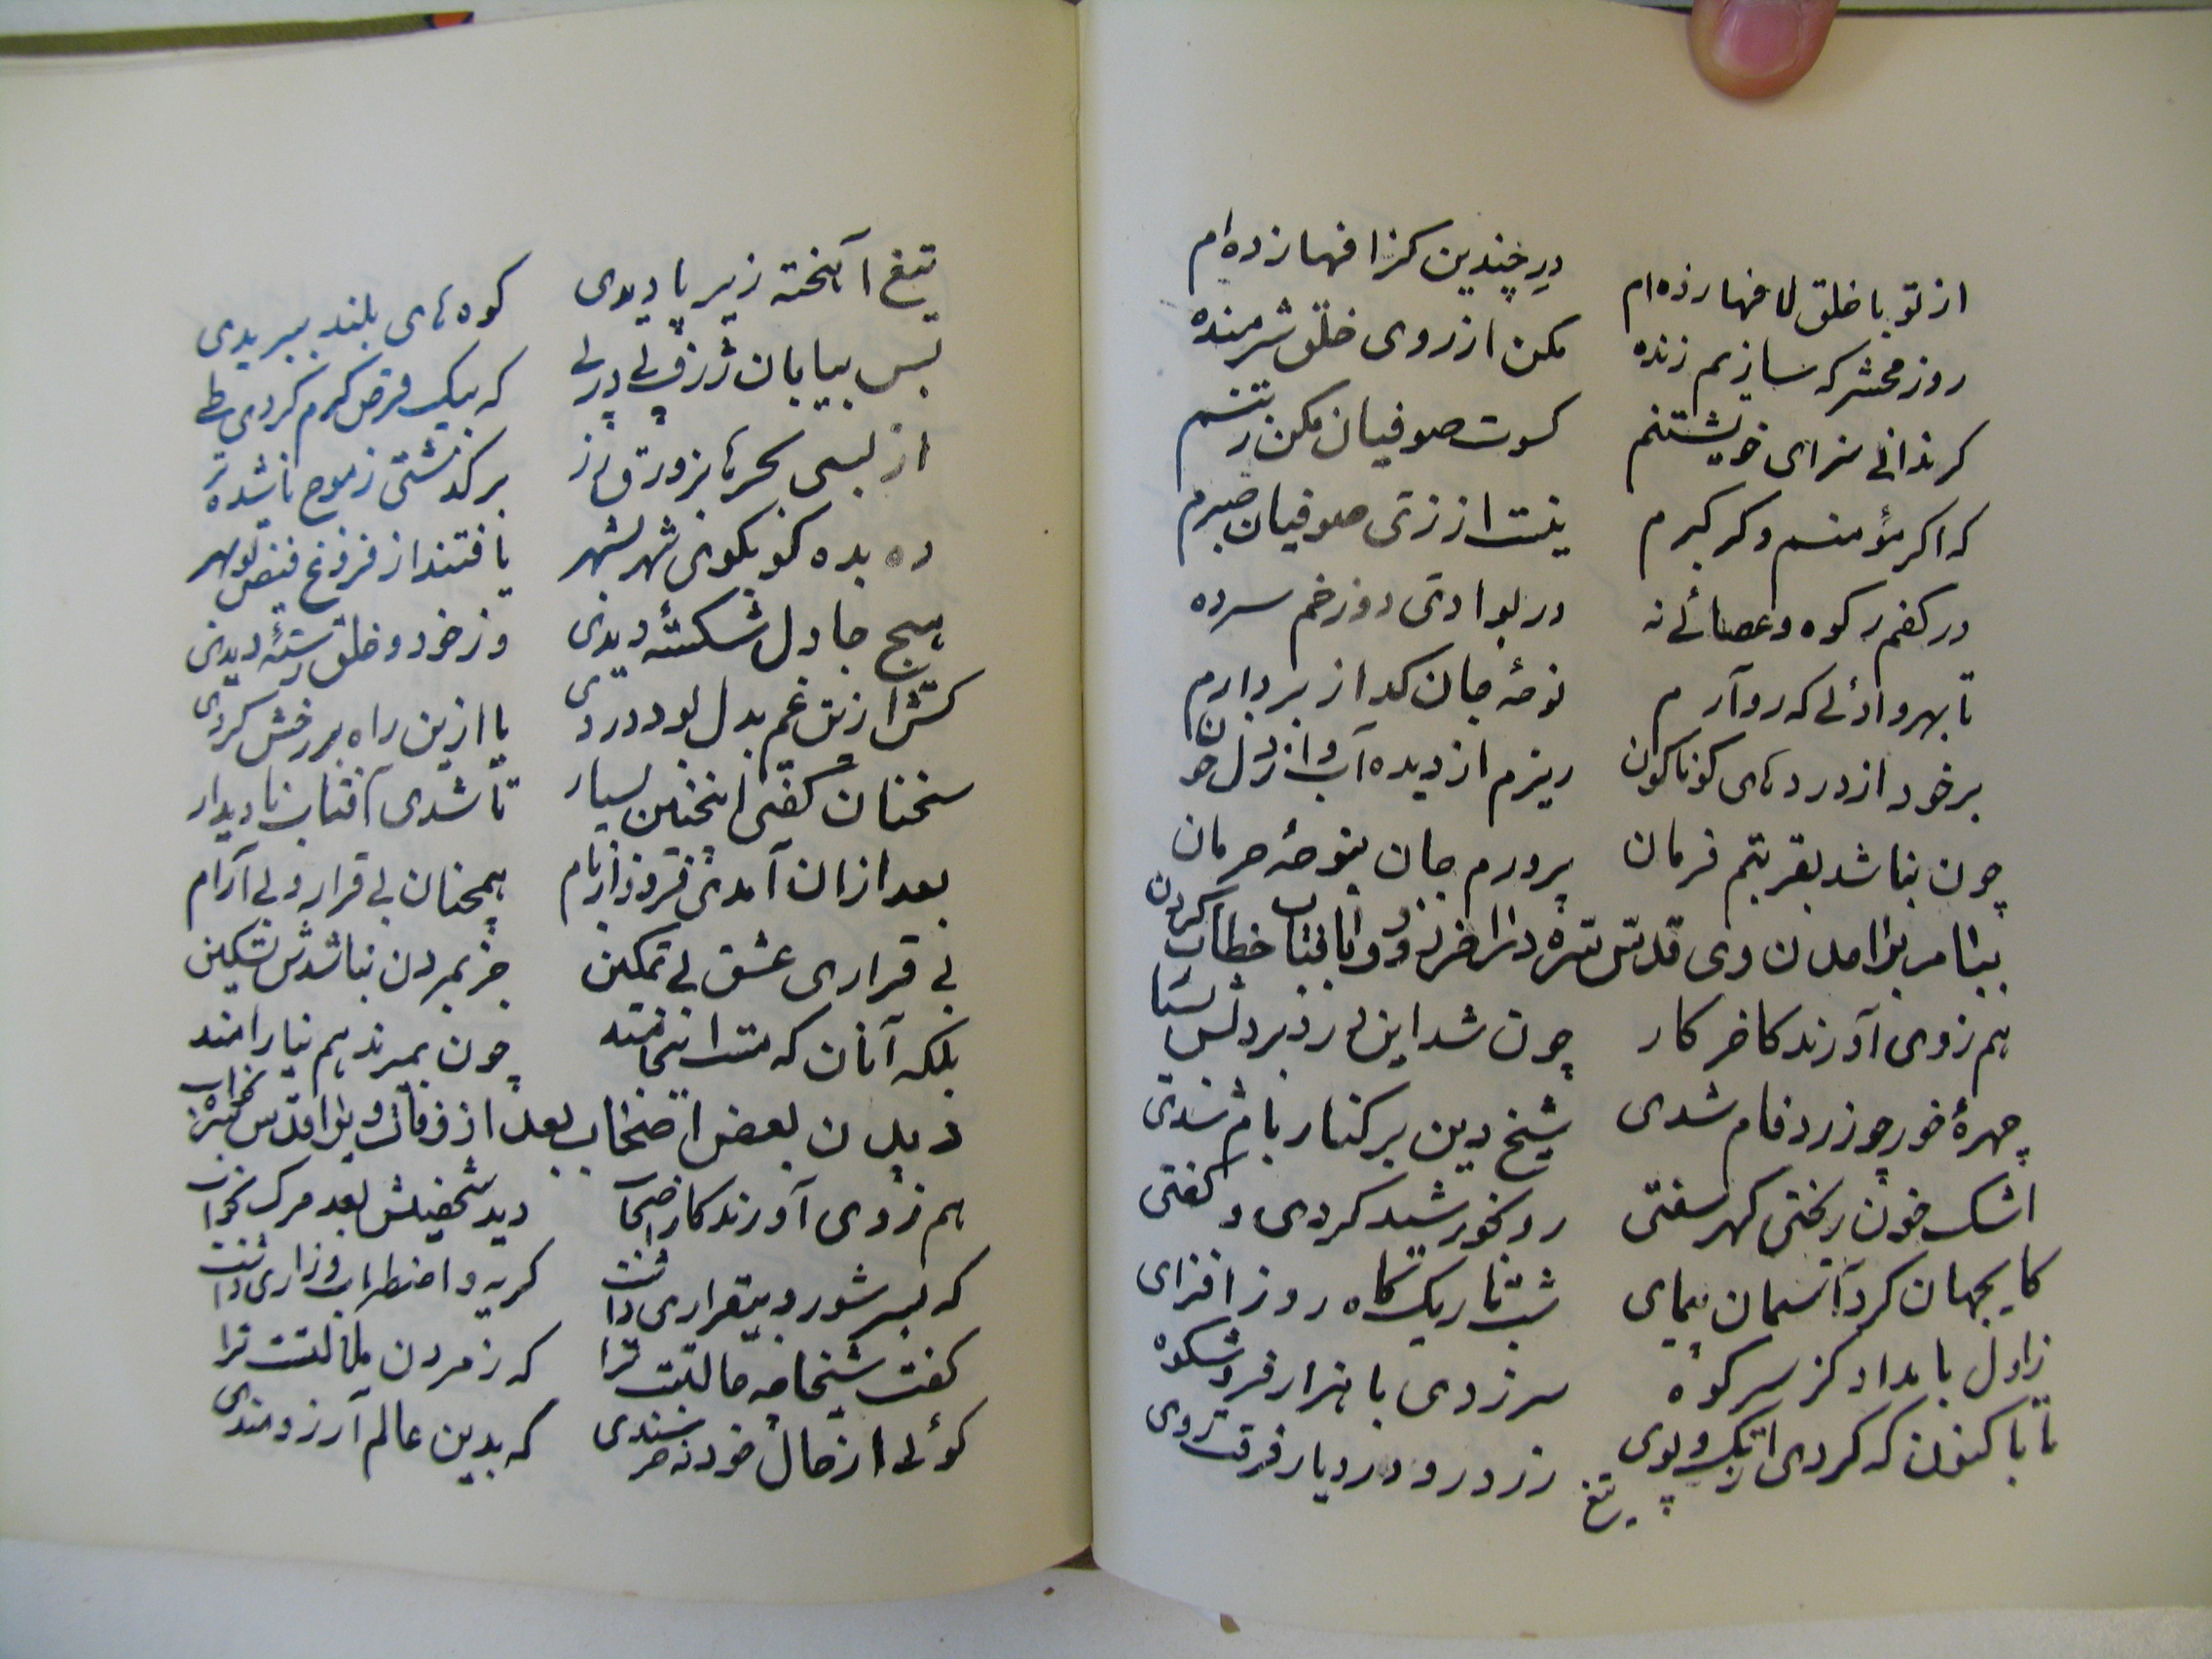 از تو با خلق لافها زده‌ام در چندین گزافها زده‌ام
روز محشر که سازیم زنده مکن از روی خلق شرمنده
گر ندانی سزای خویشتنم کسوت صوفیان مکن ز تنم
که اگر مؤمنم وگر گبرم نیست از زی صوفیان صبرم
در کفم رکوه و عصائی نه در بوادی دوزخم سرده
تا بهر وادئی که رو آرم نوحهٔ جان گداز بردارم
بر خود از دردهای گوناگون ریزم از دیده آب و از دل خون
چون نباشد بقربتم فرمان پرورم جان بنوحهٔ حرمان
ببام بر آمدن وی قدس سره در آخر روز و با آفتاب خطاب کردن
هم ز وی آورند کاخر کار چون شد این درد بر دلش بسیار
چهرهٔ خور چو زردفام شدی شیخ دین بر کنار بام شدی
اشک خون ریختی گهر سفتی رو بخورشید کردی و گفتی
کای جهان گرد آسمان پیمای شب تاریک کاه روز افزای
ز اول بامداد کز سر کوه سر زدی با هزار فر و شکوه
تا باکنون که کردی از تک و پوی زرد رو در دیار فرقت روی
تیغ
تیغ آهخته زیر پا دیدی کوههای بلند ببریدی
بس بیابان ژرف پی در پی که بیک قرص گرم کردی طی
از بسی بحرها بزورق زر برگذشتی ز موج ناشده تر
ده بده کو بکوی شهر بشهر یافتند از فروغ فیض تو بهر
هیچ جا دل شکستهٔ دیدی وز خود و خلق رستهٔ دیدی
کش ازین غم بدل بود دردی یا ازین راه بر رخش گردی
سخنان گفتی اینچنین بسیار تا شدی آفتاب نادیدار
بعد از آن آمدی فرود از بام همچنان بی قرار و بی آرام
بی قراری عشق بی تمکین جز بمردن نباشدش تسکین
بلکه آنان که مست این جامند چون بمیرند هم نیارامند
دیدن بعض اصحاب بعد از وفات ویرا قدس سره بخواب
هم ز وی آورند کز اصحاب دید شخصیش بعد مرگ بخواب
که بسر شور و بیقراری داشت گریه و اضطراب و زاری داشت
گفت شیخا چه حالتست ترا که ز مردن ملالتست ترا
گوئی از حال خود نه خرسندی که بدین عالم آرزومندی